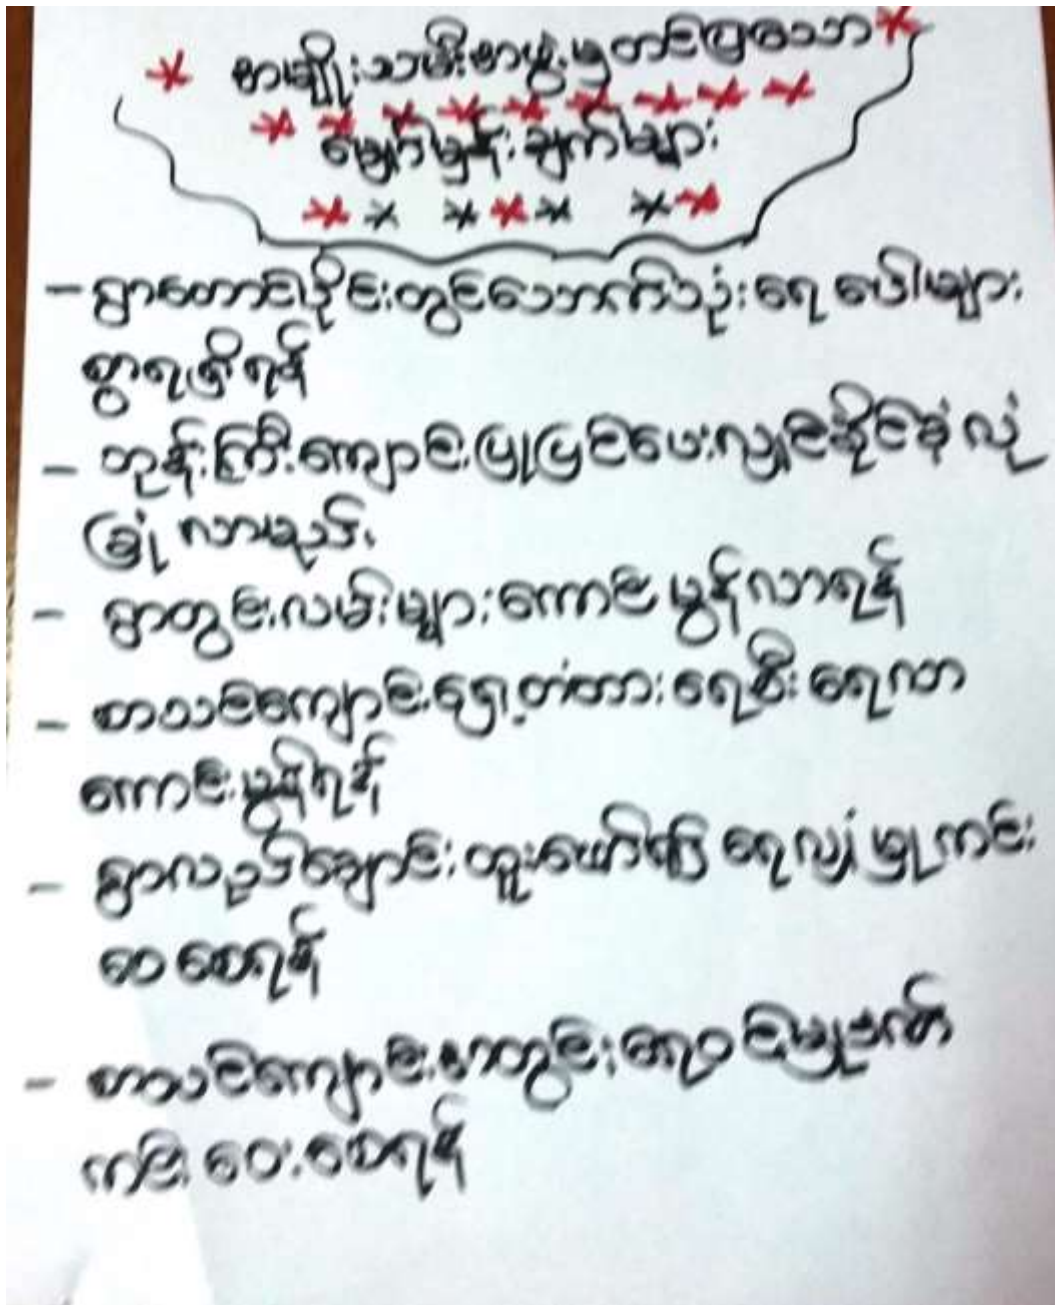 အမျိုးသမီးအဖွဲ့မှတင်ပြသော
မျှော်မှန်းချက်များ
- ရွာတောင်ပိုင်းတွင်သောက်သုံးရေ ပေါများ
စွာရရှိရန်
- ဘုန်းကြီးကျောင်းပြုပြင်ပေးလျှင်ခိုင်ခံ့လုံ
ခြုံ လာမည်။
- ရွာတွင်းလမ်းများကောင်းမွန်လာရန်
- စာသင်ကျောင်းရှေ့တံတား ရေစီး ရေလာ
ကောင်းမွန်ရန်
- ရွာလည်ချောင်း တူးဖော်ပြီး ရေလျှံမှုကင်း
ဝေးစေရန်
- စာသင်ကျောင်းအတွင်း ရေဝင်မှုဒဏ်
ကင်းဝေးစေရန်